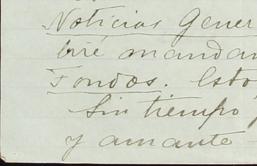 Noticias Gener
iré mandan
Fondos. Esto
sin tiempo
y amante